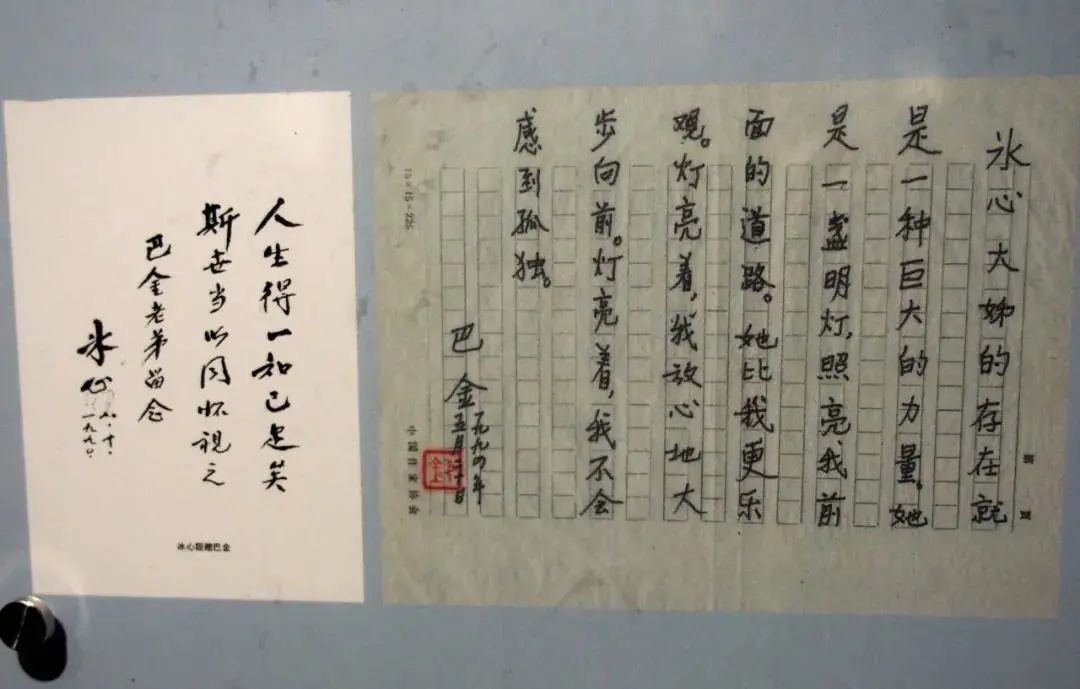 人生得一知己足矣
斯世当以同怀视之
巴金老弟留念
冰心
一九九〇
冰心题赠巴金
第 页
冰心大姊的存在就
是一种巨大的力量。她
是一盏明灯,照亮我前
面的道路。她比我更乐
观。灯亮着,我放心地大
步向前。灯亮着,我不会
感到孤独。
巴金
一九九四年
五月二十日
15×15=225
中国作家协会